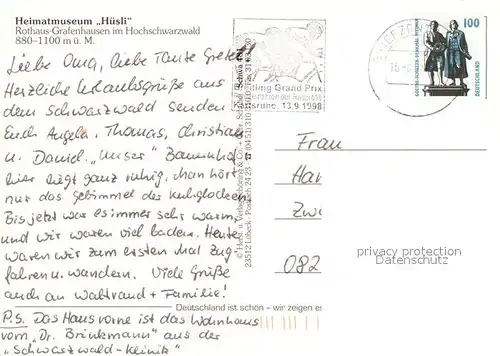 Heimatmuseum „Hüsli"
Rothaus-Grafenhausen im Hochschwarzwald
880–1100 m ü. M.
Liebe Oma, liebe Tante Gretel!
Herzliche Urlaubsgrüße aus
dem Schwarzwald senden
Euch Angela, Thomas, Christian
u. Daniel. „Unser" Bauernhof
hier liegt ganz ruhig, man hört
nur das gebimmel der Kuhglocken.
Bis jetzt war es immer sehr warm,
und wir waren viel baden. Heute
waren wir zum ersten Mal Zug-
fahren u. wandern. Viele Grüße
auch an Waltraud + Familie!
P.S. Das Haus vorne ist das Wohnhaus
vom „Dr. Brinkmann" aus der
„Schwarzwald-Klinik"
Deutschland ist schön – wir zeigen es
23512 Lübeck · Postfach 24 23
Grand Prix
13.9.1998
BRIEFZE
100
DEUTSCHLAND
Frau
Ha
Zw
082
privacy protection
Datenschutz